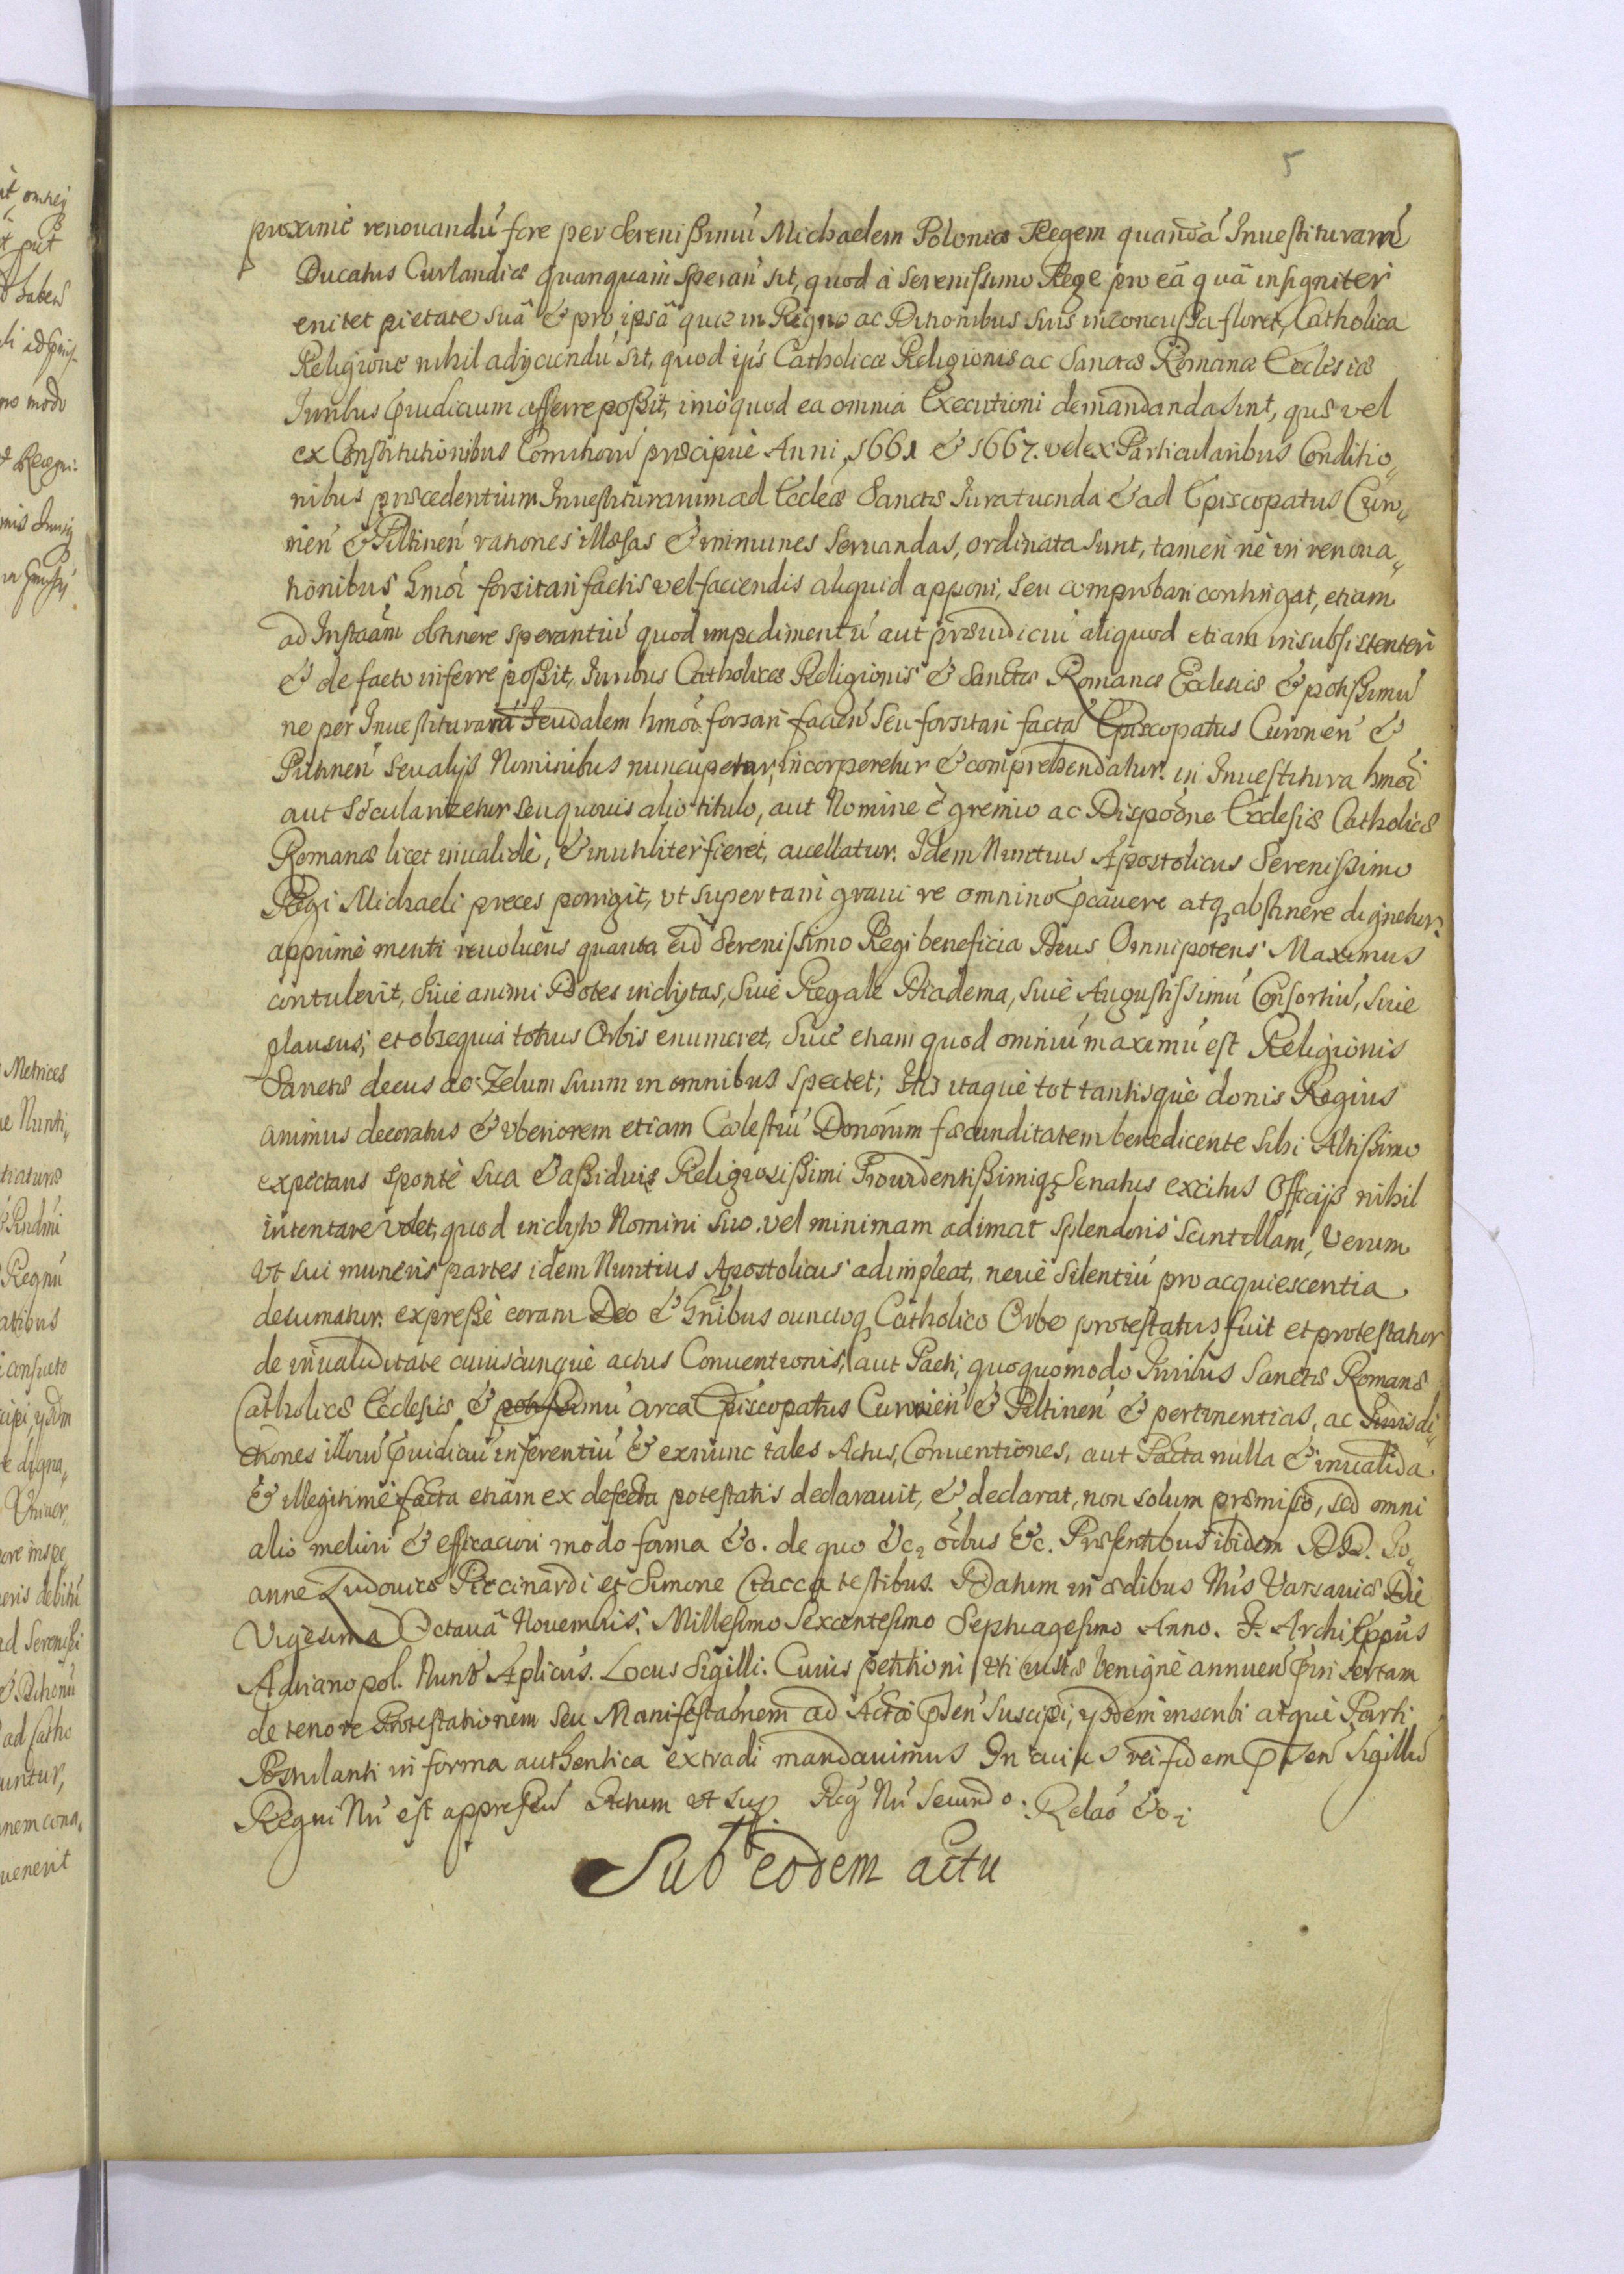 5
proximè renouandú fore per Serenißimú Michaelem Poloniæ Regem quandá Inuestituram
Ducatus Curlandiæ quanquam speran sit, quod à serenissimo Rege pro eâ quâ insigniter
enitet pietate suâ & pro ipsâ quæ in Regno ac Ditionibus suis inconcußa floret, Catholica
Religione nihil adijciendú sit, quod ijs Catholicæ Religionis ac Sanctæ Romanæ Ecclesiæ
Iuribus pręudicium afferre poßit, imò quod ea omnia Executioni demandanda sint, quæ vel
ex Constitutionibus Comitiorú præcipuè Anni 1661 & 1667. vel ex Particularibus Conditio„
nibus præcedentium Inuestiturarum ad Eccleæ Sanctæ Iura tuenda & ad Episcopatus Curo„
nień & Piltineń rationes illæsas & immunes seruandas, ordinata sunt, tamen nè in renoua„
tionibus hmoi forsitan factis vel faciendis aliquid apponi, seu comprobari contingat, etiam
ad Instaám obtinere sperantiú quod impedimentú aut præiudiciú aliquod etiam insubsistenter
& de facto inferre poßit, Iuribus Catholicæ Religionis & Sanctæ Romanæ Ecclesiæ & potißimú
ne per Inuestituram feudalem hmoi forsan facień seu forsitan factá Episcopatus Curonień &
Piltineń seu alijs Nominibus nuncupetur, incorporetur & comprehendatur in Inuestitura hmoi
aut sæcularizetur seu quouis alio titulo, aut Nomine è gremio ac Dispoóne Ecclesiæ Catholicæ
Romanæ licet inualidè, & inutiliter fieret, auellatur. Idem Nuntius Apostolicus Serenissimo
Regi Michaeli preces porrigit, vt super tam graui re omnino pcauere atq abstinere dignetur,
apprimè menti reuoluens quanta eid Serenissimo Regi beneficia Deus Omnipotens Maximus
contulerit, siuè animi Dotes inclytas, siuè Regale Diadema, siuè Augustissimú Consortiú, siuè
plausus, et obsequia totius Orbis enumeret, siuè etiam quod omniú maximú est Religionis
Sanctæ decus ac Zelum suum in omnibus spectet; His itaquè tot tantisquè donis Regius
animus decoratus & vberiorem etiam Cælestiú Donorum fæcunditatem benedicente sibi Altißimo
expectans spontè sua & aßiduis Religiosißimi Prouidentißimiq Senatus excitus Officijs nihil
intentare volet, quod inclyto Nomini suo vel minimam adimat splendoris scintillam, Verum
Vt sui muneris partes idem Nuntius Apostolicus adimpleat, neuè silentiú pro acquiescentia
desumatur expreßè coram Deo & hńibus cunctoq Catholico Orbe protestatus fuit et protestatur
de inualiditate cuiuscunquè actus Conuentionis, aut Pacti, quoquomodo Iuribus Sanctæ Romanæ
Catholicæ Ecclesiæ & potißimú circa Episcopatus Curonień & Piltineń & pertinentias, ac Iurisdi„
ctiones illorú pręudiciú inferentiú & exnunc tales Actus, Conuentiones, aut Pacta nulla & inualida
& illegitimè facta etiam ex defectu potestatis declarauit, & declarat, non solum præmißo, sed omni
alio meliori & efficaciori modo forma &c. de quo &c, oibus &c. Præsentibus ibidem DD. Io„
anne Ludouico Piccinardi et Simone Ciacca testibus. Datum in ædibus Nŕis Varsauiæ Die
Vigesima Octauâ Nouembris. Millesimo Sexcentesimo Septuagesimo Anno. F. Archi Eppús
Adrianopol. Nunt Aplicús. Locus Sigilli. Cuius petitioni vti iustæ benignè annueń pinsertam
de tenore Protestationem seu Manifestaónem ad Acta pseń suscipi, ysdem inscribi atquè Parti
Postulanti in forma authentica extradi mandauimus In cuius rei fidem pseń Sigillú
Regni Nŕi est appressú Actum vt sup Reg Nŕi secundo. Relaó &c.
Sub eodem actu